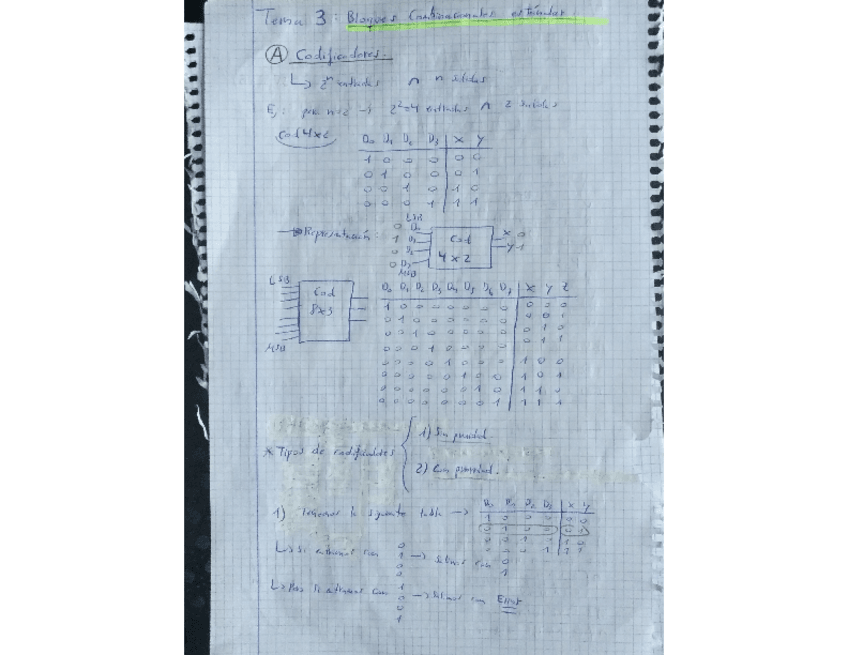 Tema 3: Bloques Combinacionales estándar
A Codificadores.
↳ 2^n entradas ∧ n salidas
Ej: para n=2 → 2²=4 entradas ∧ 2 salidas
Cod 4x2
D0 D1 D2 D3 X Y
1 0 0 0 0 0
0 1 0 0 0 1
0 0 1 0 1 0
0 0 0 1 1 1
→ Representación:
LSB
0 D0
1 D1
0 D2
0 D3
MSB
Cod
4x2
X 0
Y 1
LSB
Cod
8x3
MSB
D0 D1 D2 D3 D4 D5 D6 D7 X Y Z
1 0 0 0 0 0 0 0 0 0 0
0 1 0 0 0 0 0 0 0 0 1
0 0 1 0 0 0 0 0 0 1 0
0 0 0 1 0 0 0 0 0 1 1
0 0 0 0 1 0 0 0 1 0 0
0 0 0 0 0 1 0 0 1 0 1
0 0 0 0 0 0 1 0 1 1 0
0 0 0 0 0 0 0 1 1 1 1
* Tipos de codificadores
1) Sin prioridad.
2) Con prioridad.
1) Tenemos la siguiente tabla →
D0 D1 D2 D3 X Y
1 0 0 0 0 0
0 1 0 0 0 1
0 0 1 0 1 0
0 0 0 1 1 1
↳ Si entramos con 0 1 0 0 → Salimos con 0 1
↳ Pero si entramos con 1 0 0 1 → Salimos con Error